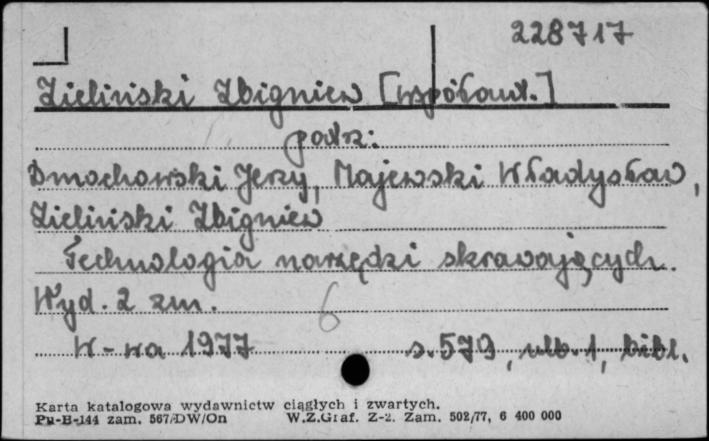 228717
Zieliński Zbigniew [współaut.]
patrz:
Dmochowski Jerzy, Majewski Władysław,
Zieliński Zbigniew
Technologia narzędzi skrawających.
Wyd. 2 zm.
6
W-wa 1977 s. 579, nlb. 1, bibl.
Karta katalogowa wydawnictw ciągłych i zwartych.
Pu-B-144 zam. 567/DW/On W.Z.Graf. Z-2. Zam. 502/77, 6 400 000